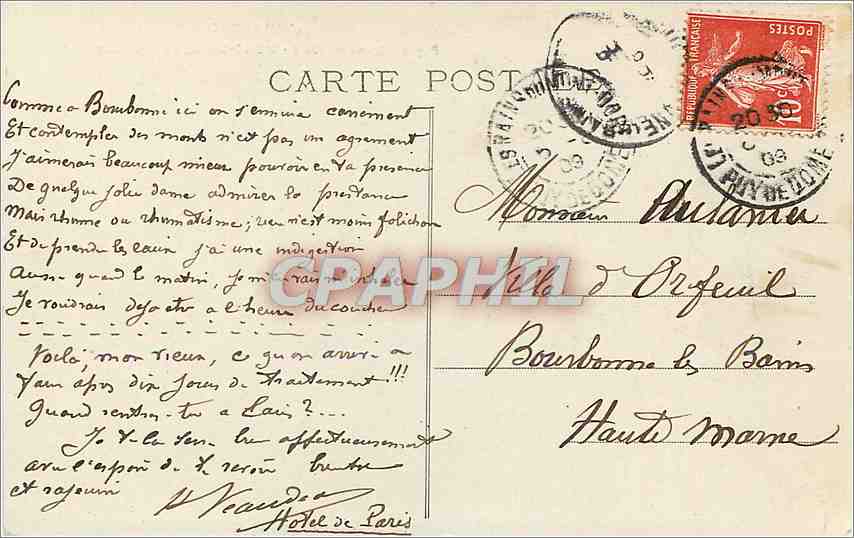 CARTE POST
Comme a Bourbonne ici on s'ennuie carrément
Et contempler des monts n'est pas un agrément
J'aimerais beaucoup mieux pouvoir en ta présence
De quelque jolie dame admirer la prestance
Mais rhume ou rhumatisme, rien n'est moins folichon
Et de prendre les eaux j'ai une indigestion
Aussi quand le matin, je m'en vais
Je voudrais deja etre a l'heure du coucher
Voilà, mon vieux, ce qu'on arrive a
faire apres dix jours de traitement!!!
Quand rentres-tu a Paris?...
Je te la serre bien affectueusement
avec l'espoir de te revoir
et rajeuni
Hotel de Paris
Monsieur
Villa d'Orfeuil
Bourbonne les Bains
Haute Marne
REPUBLIQUE FRANÇAISE
POSTES
10
20 30
09
PUY DE DOME
CPAPHIL